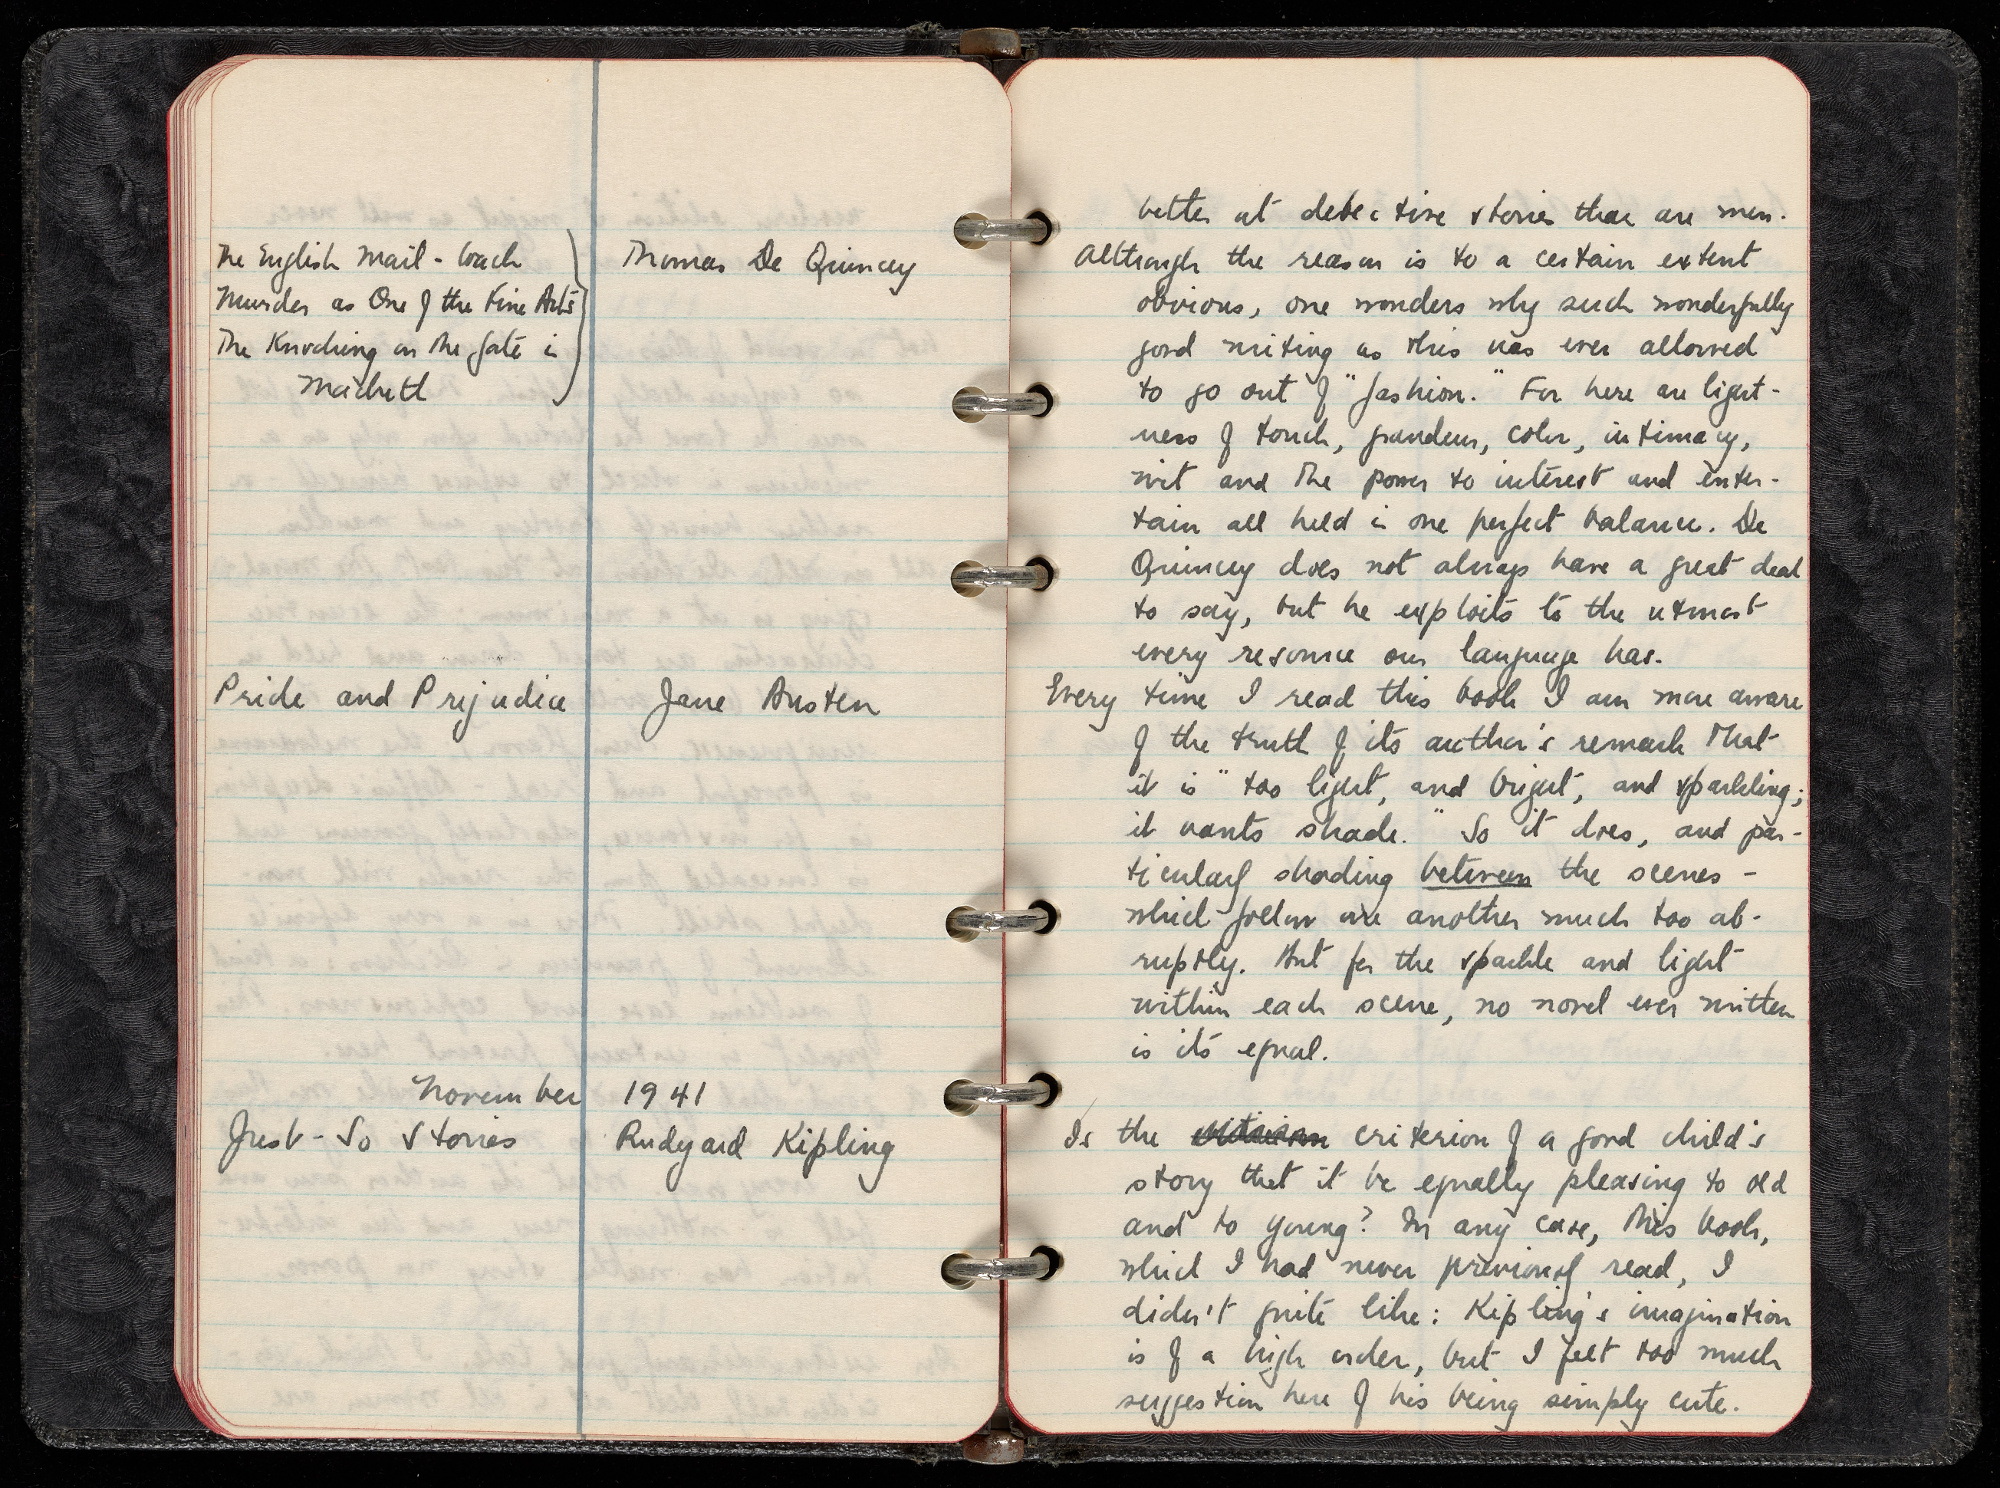 The English Mail-Coach
Murder as One of the Fine Arts
The Knocking on the Gate in
Macbeth
Thomas De Quincey
Pride and Prejudice
Jane Austen
November 1941
Just-So Stories
Rudyard Kipling
better at detective stories than are men.
Although the reason is to a certain extent
obvious, one wonders why such wonderfully
good writing as this was ever allowed
to go out of "fashion." For here are light-
ness of touch, grandeur, color, intimacy,
wit and the power to interest and enter-
tain all held in one perfect balance. De
Quincey does not always have a great deal
to say, but he exploits to the utmost
every resource our language has.
Every time I read this book I am more aware
of the truth of its author's remark that
it is "too light, and bright, and sparkling;
it wants shade." So it does, and par-
ticularly shading between the scenes -
which follow one another much too ab-
ruptly. But for the sparkle and light
within each scene, no novel ever written
is its equal.
Is the criterion of a good child's
story that it be equally pleasing to old
and to young? In any case, this book,
which I had never previously read, I
didn't quite like: Kipling's imagination
is of a high order, but I felt too much
suggestion here of his being simply cute.